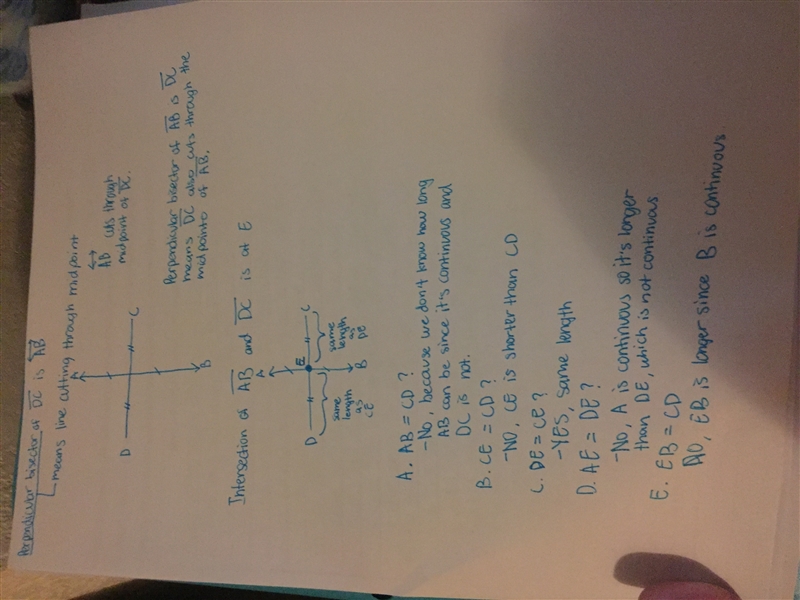 Perpendicular bisector of DC is AB
means line cutting through midpoint
A
D
C
B
AB cuts through
midpoint of DC.
Perpendicular bisector of AB is DC
means DC also cuts through the
midpoint of AB.
Intersection of AB and DC is at E
A
E
D
C
B
same
length
as
CE
same
length
as
DE
A. AB = CD?
-No, because we don't know how long
AB can be since it's continuous and
DC is not.
B. CE = CD?
-NO, CE is shorter than CD
C. DE = CE?
-YES, same length
D. AE = DE?
-No, A is continuous so it's longer
than DE, which is not continuous
E. EB = CD
No, EB is longer since B is continuous.